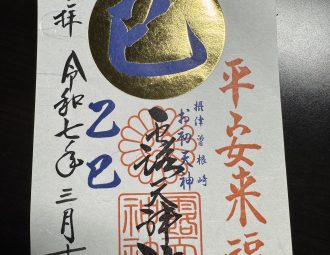 平安来福
摂津曽根崎
お初天神
露天神社
露天神社
巳
乙巳
拝
令和七年三月十